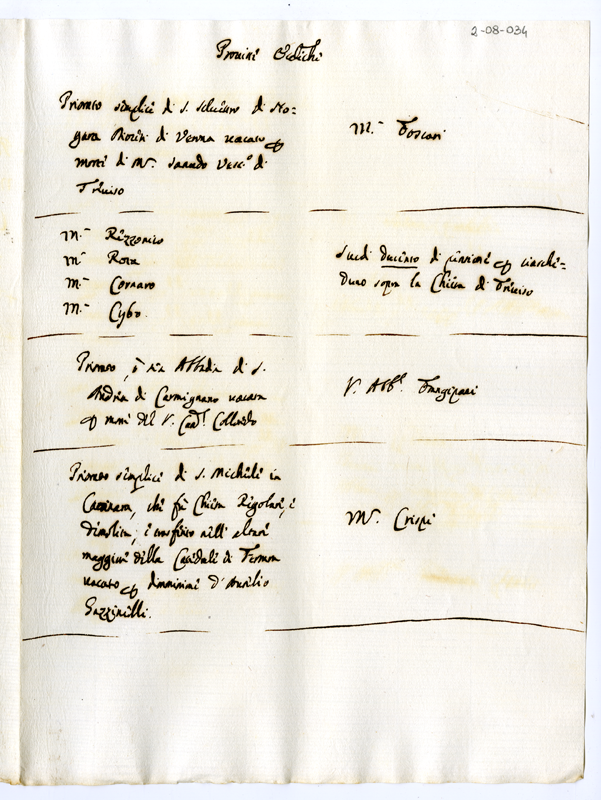 2-08-034
Priorato simplici di S. Silvestro di No=
gara Diocesi di Verona vacato per
morti di Mr. Sanudo Vesc.º di
Treviso
M.r Foscari
M.r Rezzonico
M.r Rota
M.r Cornaro
M.r Cybo.
Scudi ducento di pensioni per ciasche=
duno sopra la Chiesa di Treviso
Priorato, ò sia Abbadia di S.
Andrea di Carmignano vacata
per morti del V. Card. Colloredo
V. Abb.e Frangipani
Priorato simplici di S. Micheli in
che fù Chiesa Regolari, è
demolita, è trasferito nelli altari
maggiori della Catedrali di
vacato per dimissioni d'Aurelio
M.r Crispi